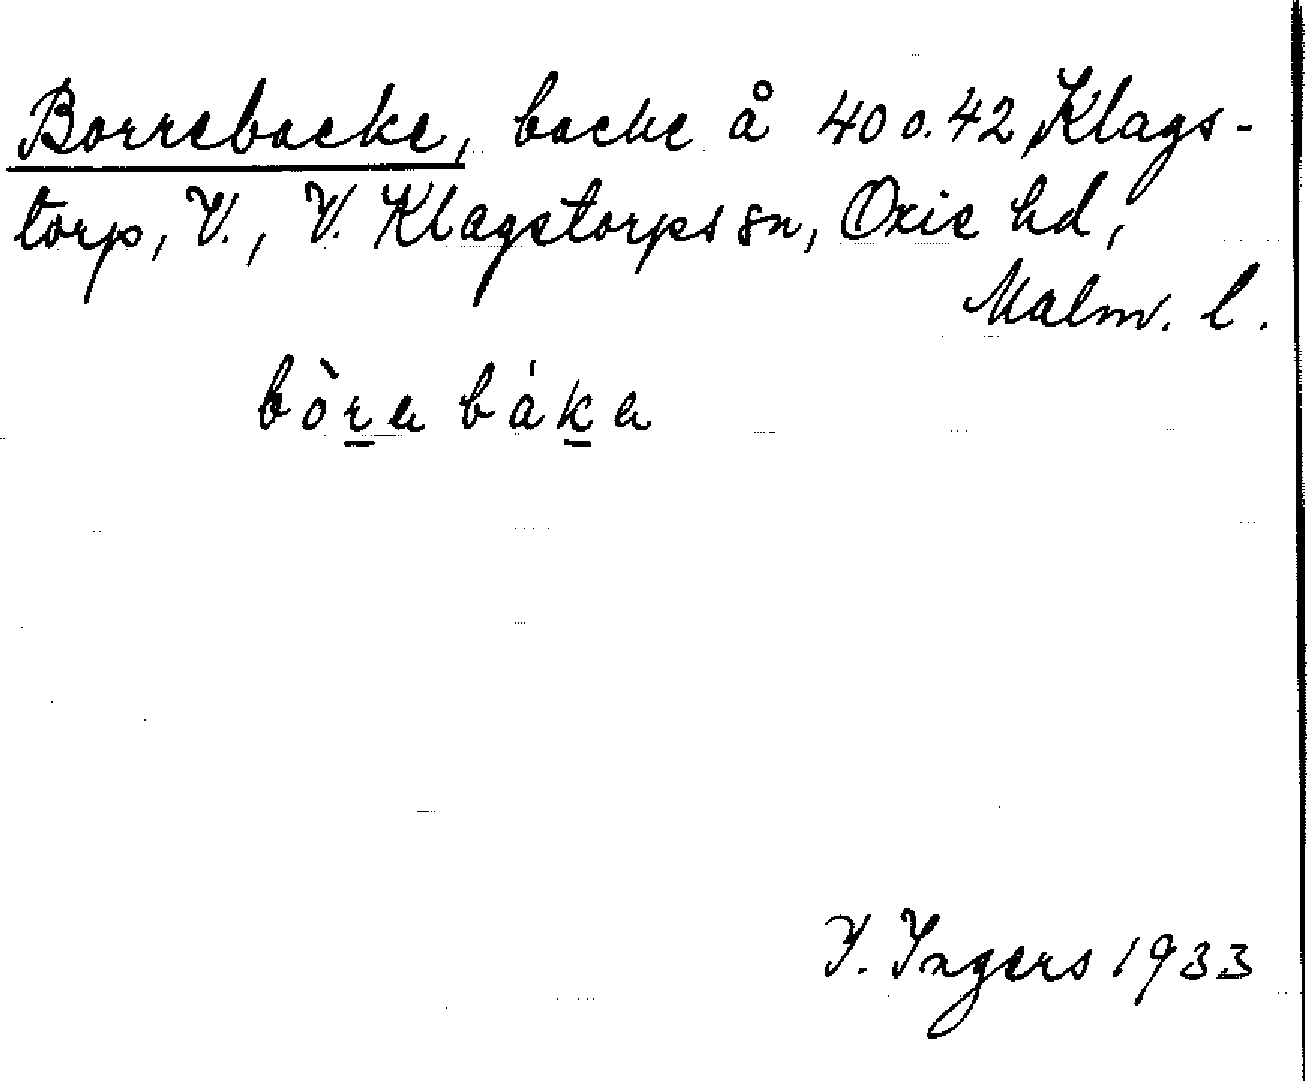 Borrebacke, backe å 40 o. 42 Klags-
torp, V., V. Klagstorps sn, Oxie hd,
Malm. l.
bòra báka
I. Ingers 1933